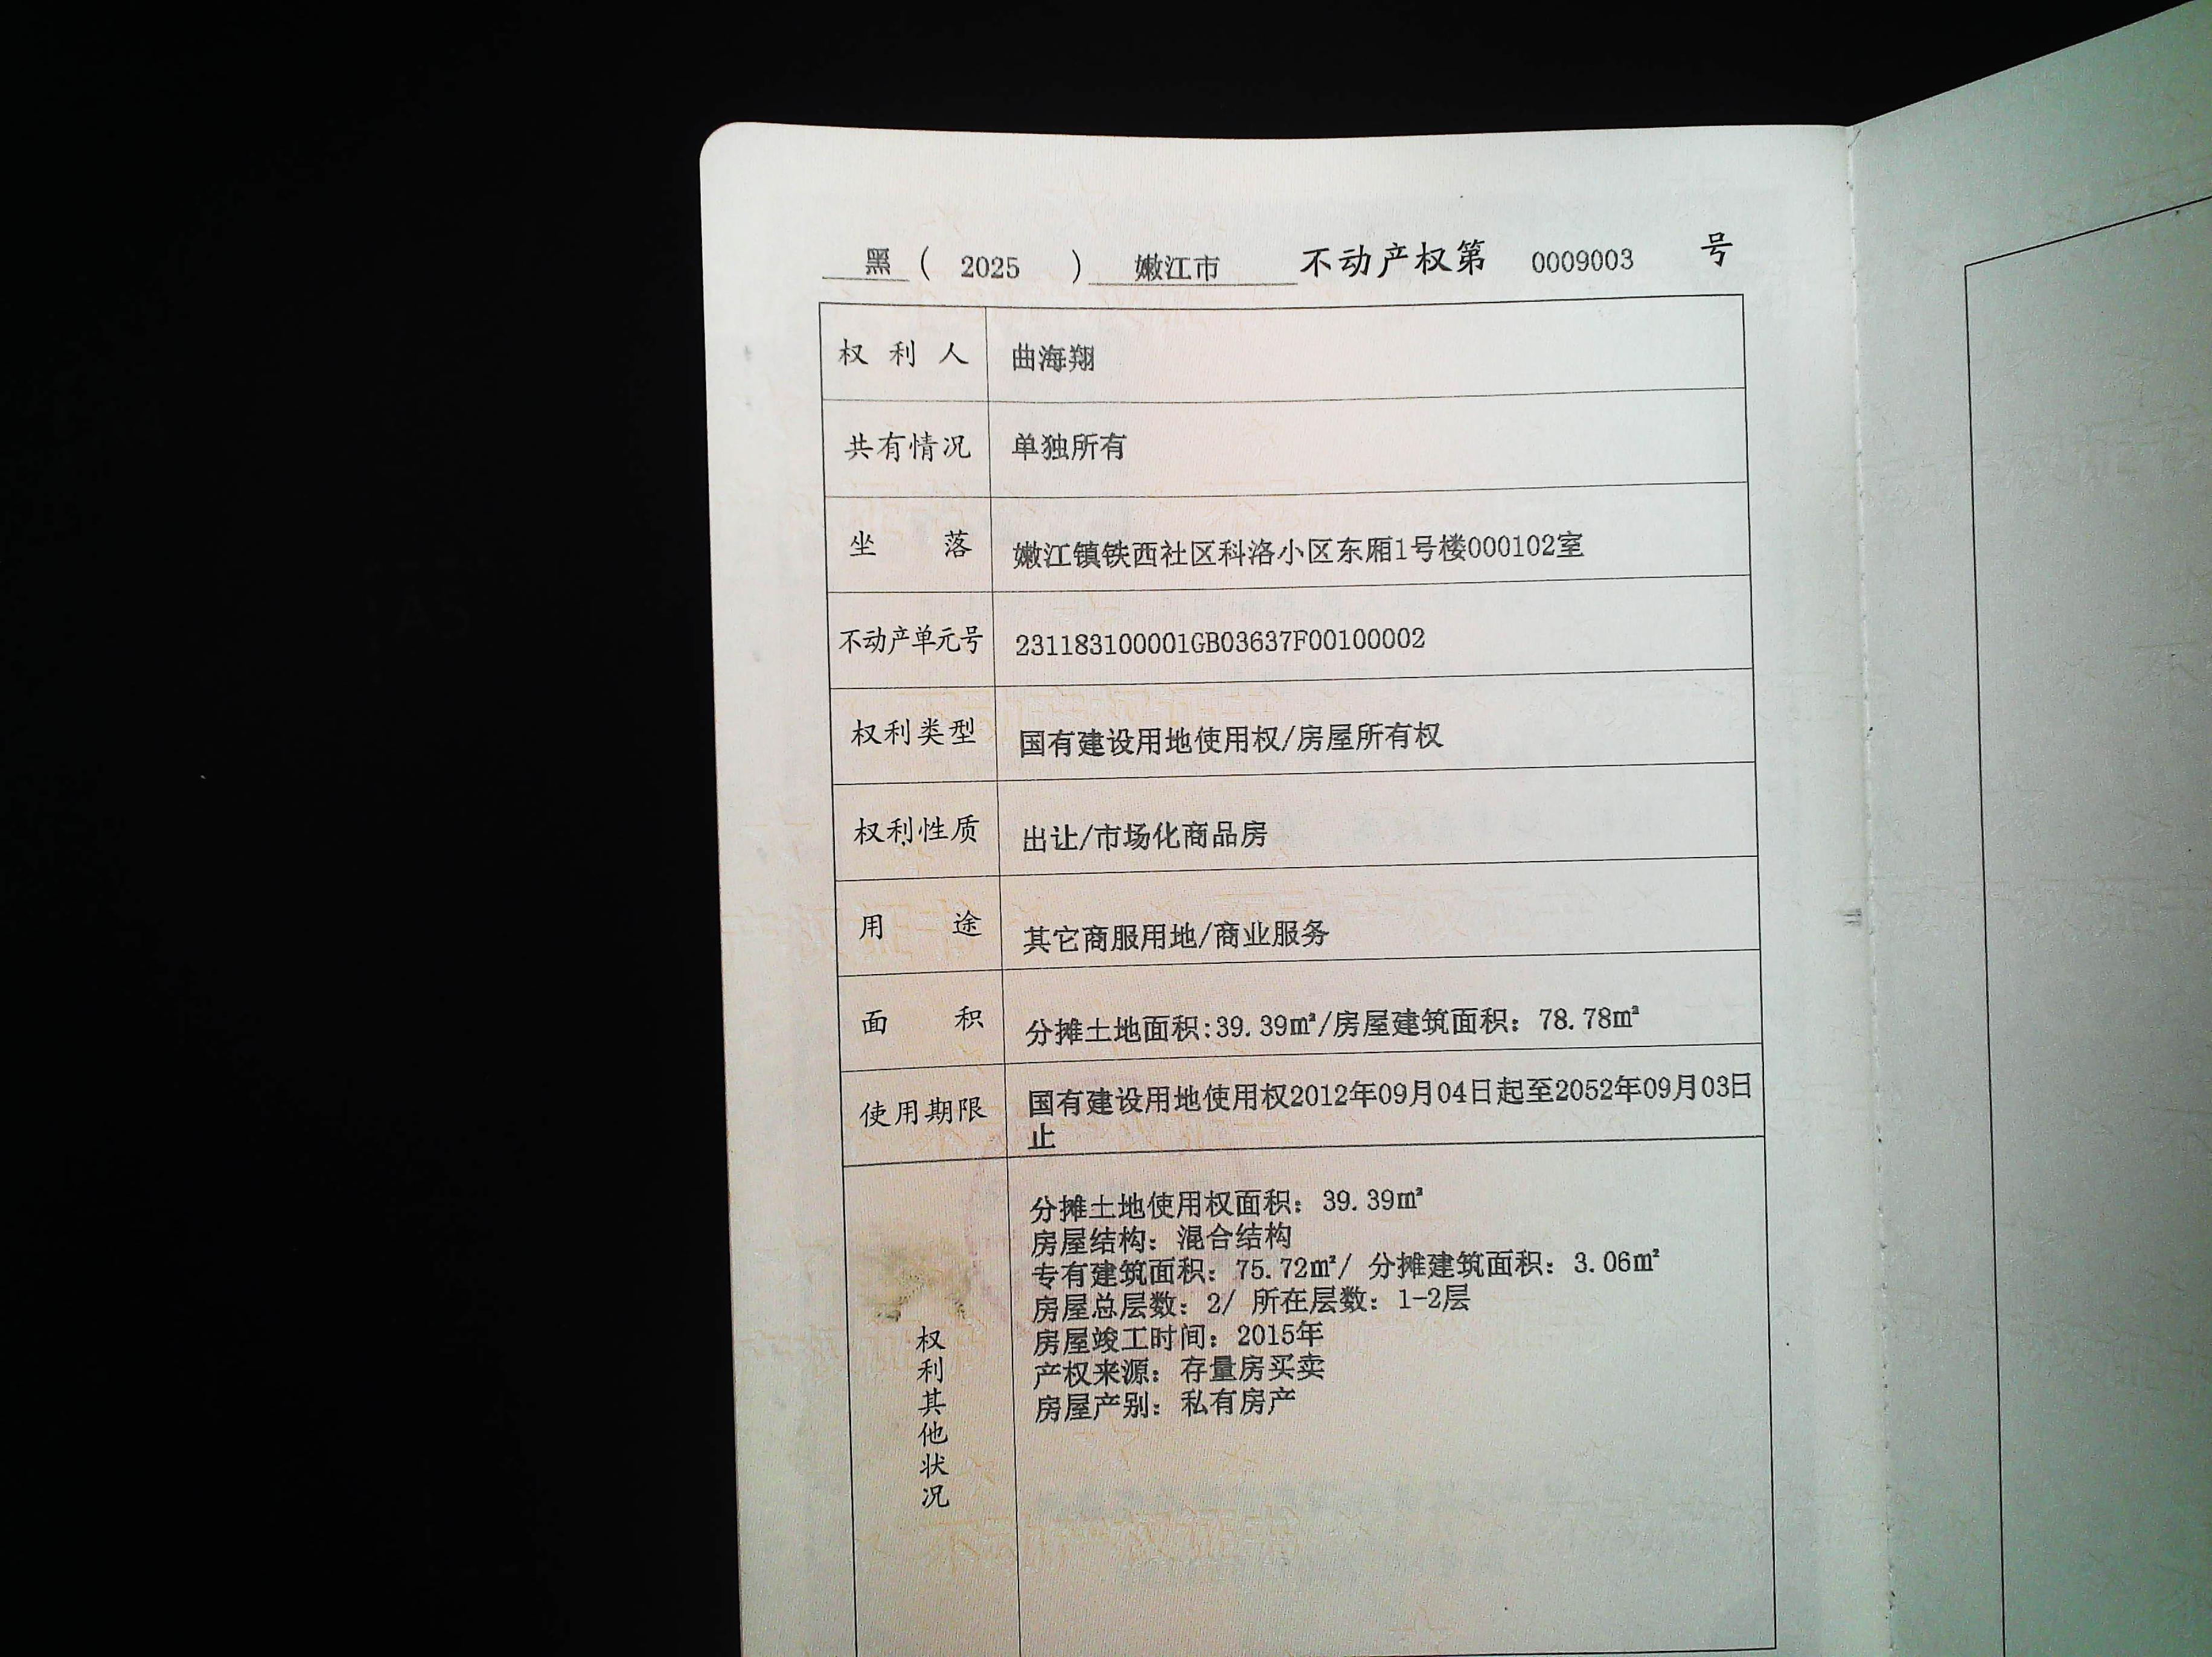 黑 ( 2025 ) 嫩江市 不动产权第 0009003 号
权利人 曲海翔
共有情况 单独所有
坐落 嫩江镇铁西社区科洛小区东厢1号楼000102室
不动产单元号 231183100001GB03637F00100002
权利类型 国有建设用地使用权/房屋所有权
权利性质 出让/市场化商品房
用途 其它商服用地/商业服务
面积 分摊土地面积:39.39㎡/房屋建筑面积：78.78㎡
使用期限 国有建设用地使用权2012年09月04日起至2052年09月03日
止
权利其他状况
分摊土地使用权面积：39.39㎡
房屋结构：混合结构
专有建筑面积：75.72㎡/ 分摊建筑面积：3.06㎡
房屋总层数：2/ 所在层数：1-2层
房屋竣工时间：2015年
产权来源：存量房买卖
房屋产别：私有房产